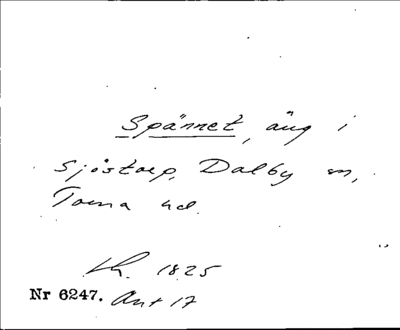 Spännet, äng i
Sjöstorp, Dalby sn,
Torna hd.
Lh. 1825
Nr 6247. Avt 17